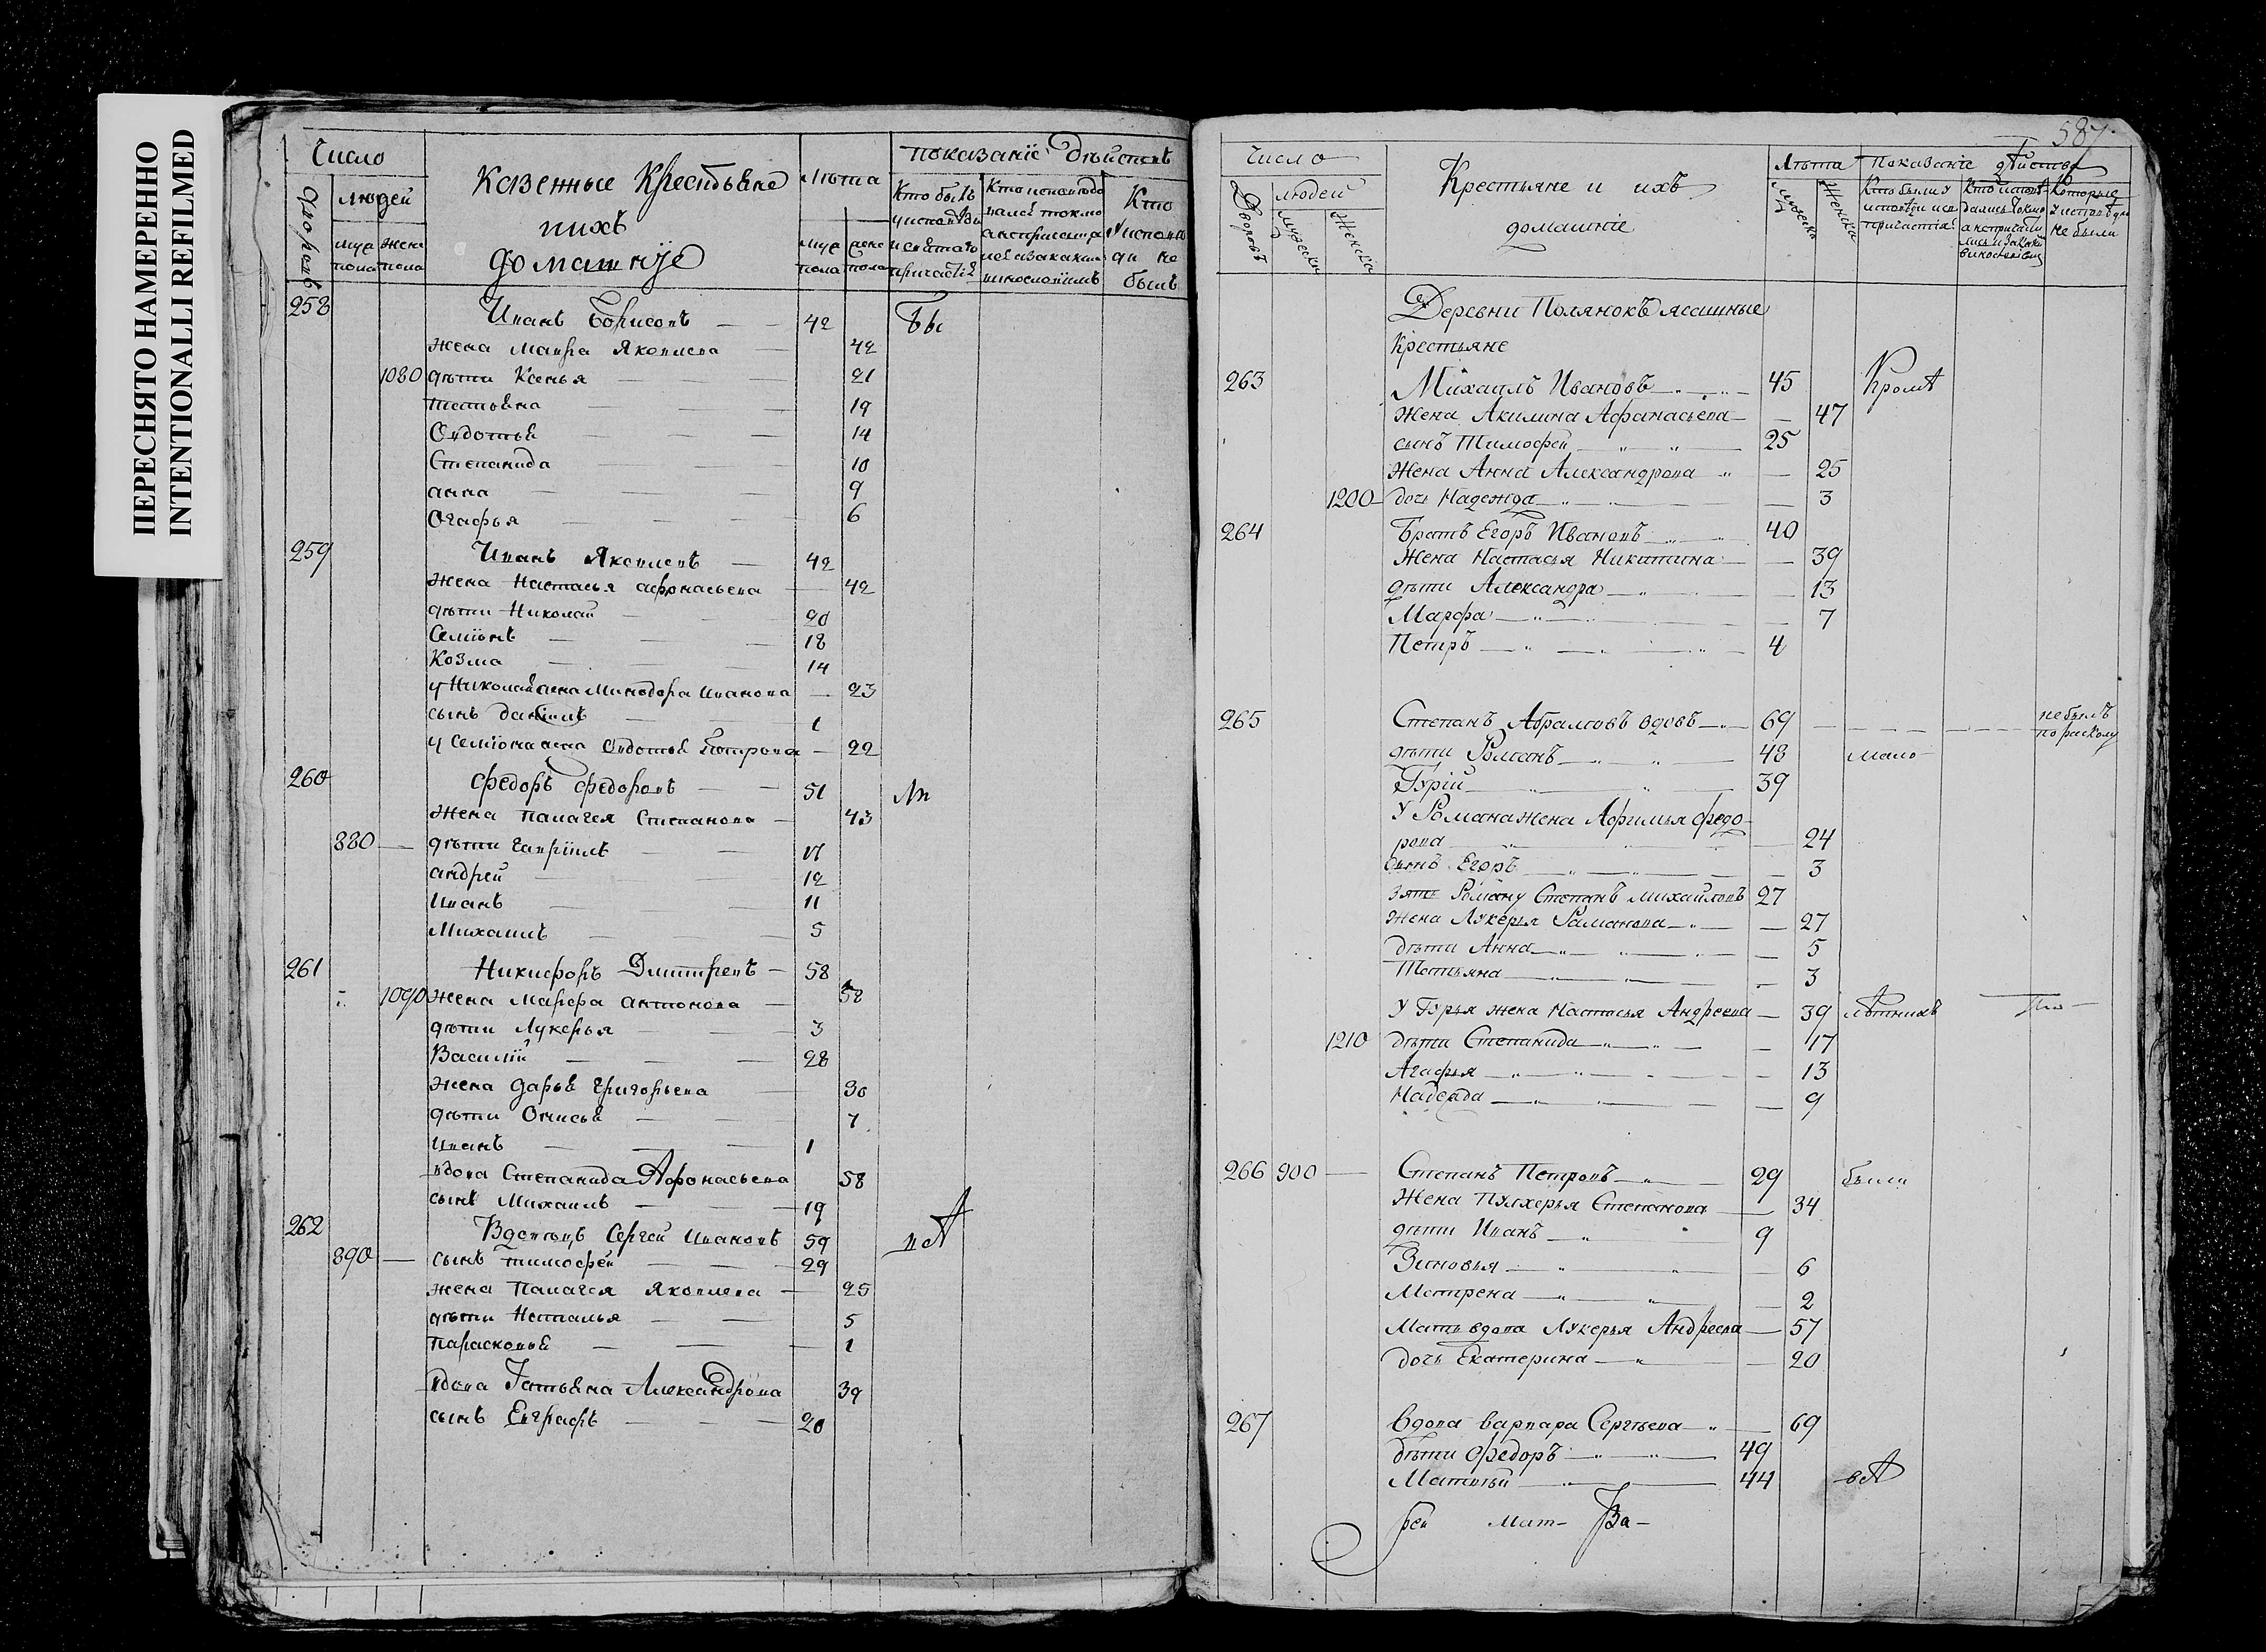 ПЕРЕСНЯТО НАМЕРЕННО
INTENTIONALLI REFILMED
Число
Дворовъ
людей
муж пола
жене пола
Казенные Крестьяне
ихъ
домашніе
Лѣта
муж пола
жене пола
показаніе дѣйствъ
Кто былъ
Кто
не
былъ
258 Иванъ Борисовъ — 42 Бы
жена Мавра Яковлева — 42
1080 дѣти Ксенья — 21
татьяна — 19
Овдотья — 14
Степанида — 10
анна — 9
Огафья — 6
259 Иванъ Яковлевъ — 42
Жена Настасья афонасьева — 42
дѣти Николай — 20
Семіонъ — 18
Козма — 14
у Николая жена Минодора Иванова — 23
сынъ даніилъ — 1
у Семіона жена Овдотья Петрова — 22
260 Федоръ Федоровъ — 51 ли
Жена Палагея Степанова — 43
880 — дѣти Гавріилъ — 17
андрей — 12
Иванъ — 11
Михаилъ — 5
261 Никифоръ Дмитревъ — 58
1090 Жена Марфа антонова — 58
дѣти Лукерья — 3
Василій — 28
Жена дарья Григорьева — 30
дѣти Онисья — 7
иванъ — 1
вдова Степанида Афонасьева 58
сынъ Михаилъ — 19
262 Вдовецъ Сергей Ивановъ 59 вА
890 — сынъ тимофей — 29
жена Палагея Яковлева — 25
дѣти Наталья — 5
парасковья — 1
вдова Татьяна Александрова 39
сынъ Евграфъ — 20
587
Число
Дворовъ
людей
Мужеска
Женска
Крестьяне и ихъ
домашніе
Лѣта
Мужеска
Женска
показаніе дѣйства
Кто были у
исповѣди и св
причастія
Которые
у исповѣди
не были
Деревни Полянокъ ясашные
Крестьяне
263 Михаилъ Ивановъ — 45 Кромѣ
Жена Акилина Афанасьева — 47
сынъ Тимофей — 25
Жена Анна Александрова — 25
1200 — дочь Надежда — 3
264 Братъ Егоръ Ивановъ — 40
Жена Настасья Никитина — 39
дѣти Александра — 13
Марфа — 7
Петръ — 4
265 Степанъ Абрамовъ вдовъ — 69 — небылъ
по расколу
дѣти Романъ — 48 мало
Гурій — 39
У Романа жена Афимья Федо
рова — 24
сынъ Егоръ — 3
зять Роману Степанъ Михайловъ 27
Жена Лукерья Раманова — 27
дѣти Анна — 5
Татьяна — 3
У Гурья жена Настасья Андреева — 39 лѣтнихъ
1210 дѣти Степанида — 17
Агафья — 13
Надежда — 9
266 900 — Степанъ Петровъ — 29 были
Жена Пулхерья Степанова — 34
дѣти Иванъ — 9
Зиновья — 6
Матрена — 2
Мать вдова Лукерья Андреева — 57
дочь Екатерина — 20
267 Вдова варвара Сергѣева — 69
дѣти Федоръ — 49
Матвѣй — 44 вА
рей Мат- Ва-